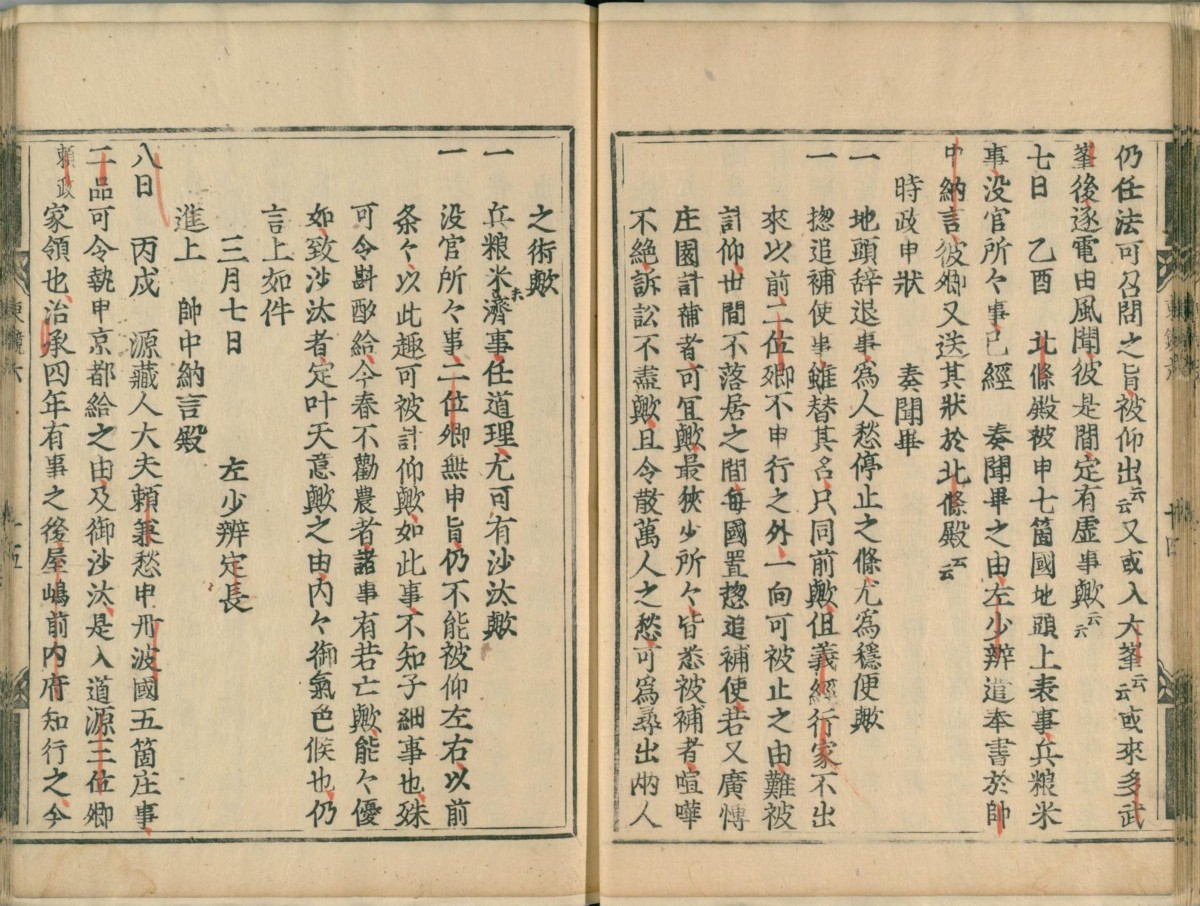 仍任法可召問之旨被仰出云云又或入大峯云云或來多武
峯後逐電由風聞彼是間定有虛事歟云云
七日　乙酉　北條殿被申七箇國地頭上表事兵粮米
事没官所々事已經　奏聞畢之由左少辨遣奉書於帥
中納言彼卿又送其狀於北條殿云云
時政申狀　　奏聞畢
一　地頭辞退事爲人愁停止之條尤爲穩便歟
一　惣追補使事雖替其名只同前歟但義經行家不出
來以前二位卿不申行之外一向可被止之由難被
計仰世間不落居之間毎國置惣追補使若又廣博
庄園計補者可冝歟最狹少所々皆悉被補者喧嘩
不絶訴訟不盡歟且令散萬人之愁可爲尋出兩人
之術歟
一　兵粮米未濟事任道理尤可有沙汰歟
一　没官所々事二位卿無申旨仍不能被仰左右以前
条々以此趣可被計仰歟如此事不知子細事也殊
可令斟酌給今春不勸農者諸事有若亡歟能々優
如致沙汰者定叶天意歟之由内々御氣色候也仍
言上如件
三月七日　　　左少辨定長
進上　帥中納言殿
八日　丙戌　源藏人大夫頼兼愁申丹波國五箇庄事
二品可令執申京都給之由及御沙汰是入道源三位卿
頼政家領也治承四年有事之後屋嶋前内府知行之今
東鏡六
十五
十四